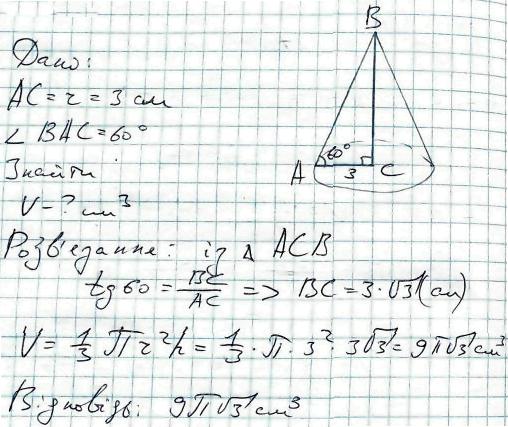 B
Дано:
AC = r = 3 см
∠ BAC = 60°
60°
A 3 C
Знайти
V - ? см³
Розв'язання: із Δ ACB
tg 60 = BC/AC => BC = 3 · √3 (см)
V = 1/3 π r² h = 1/3 · π · 3² · 3√3 = 9π√3 см³
Відповідь: 9π√3 см³